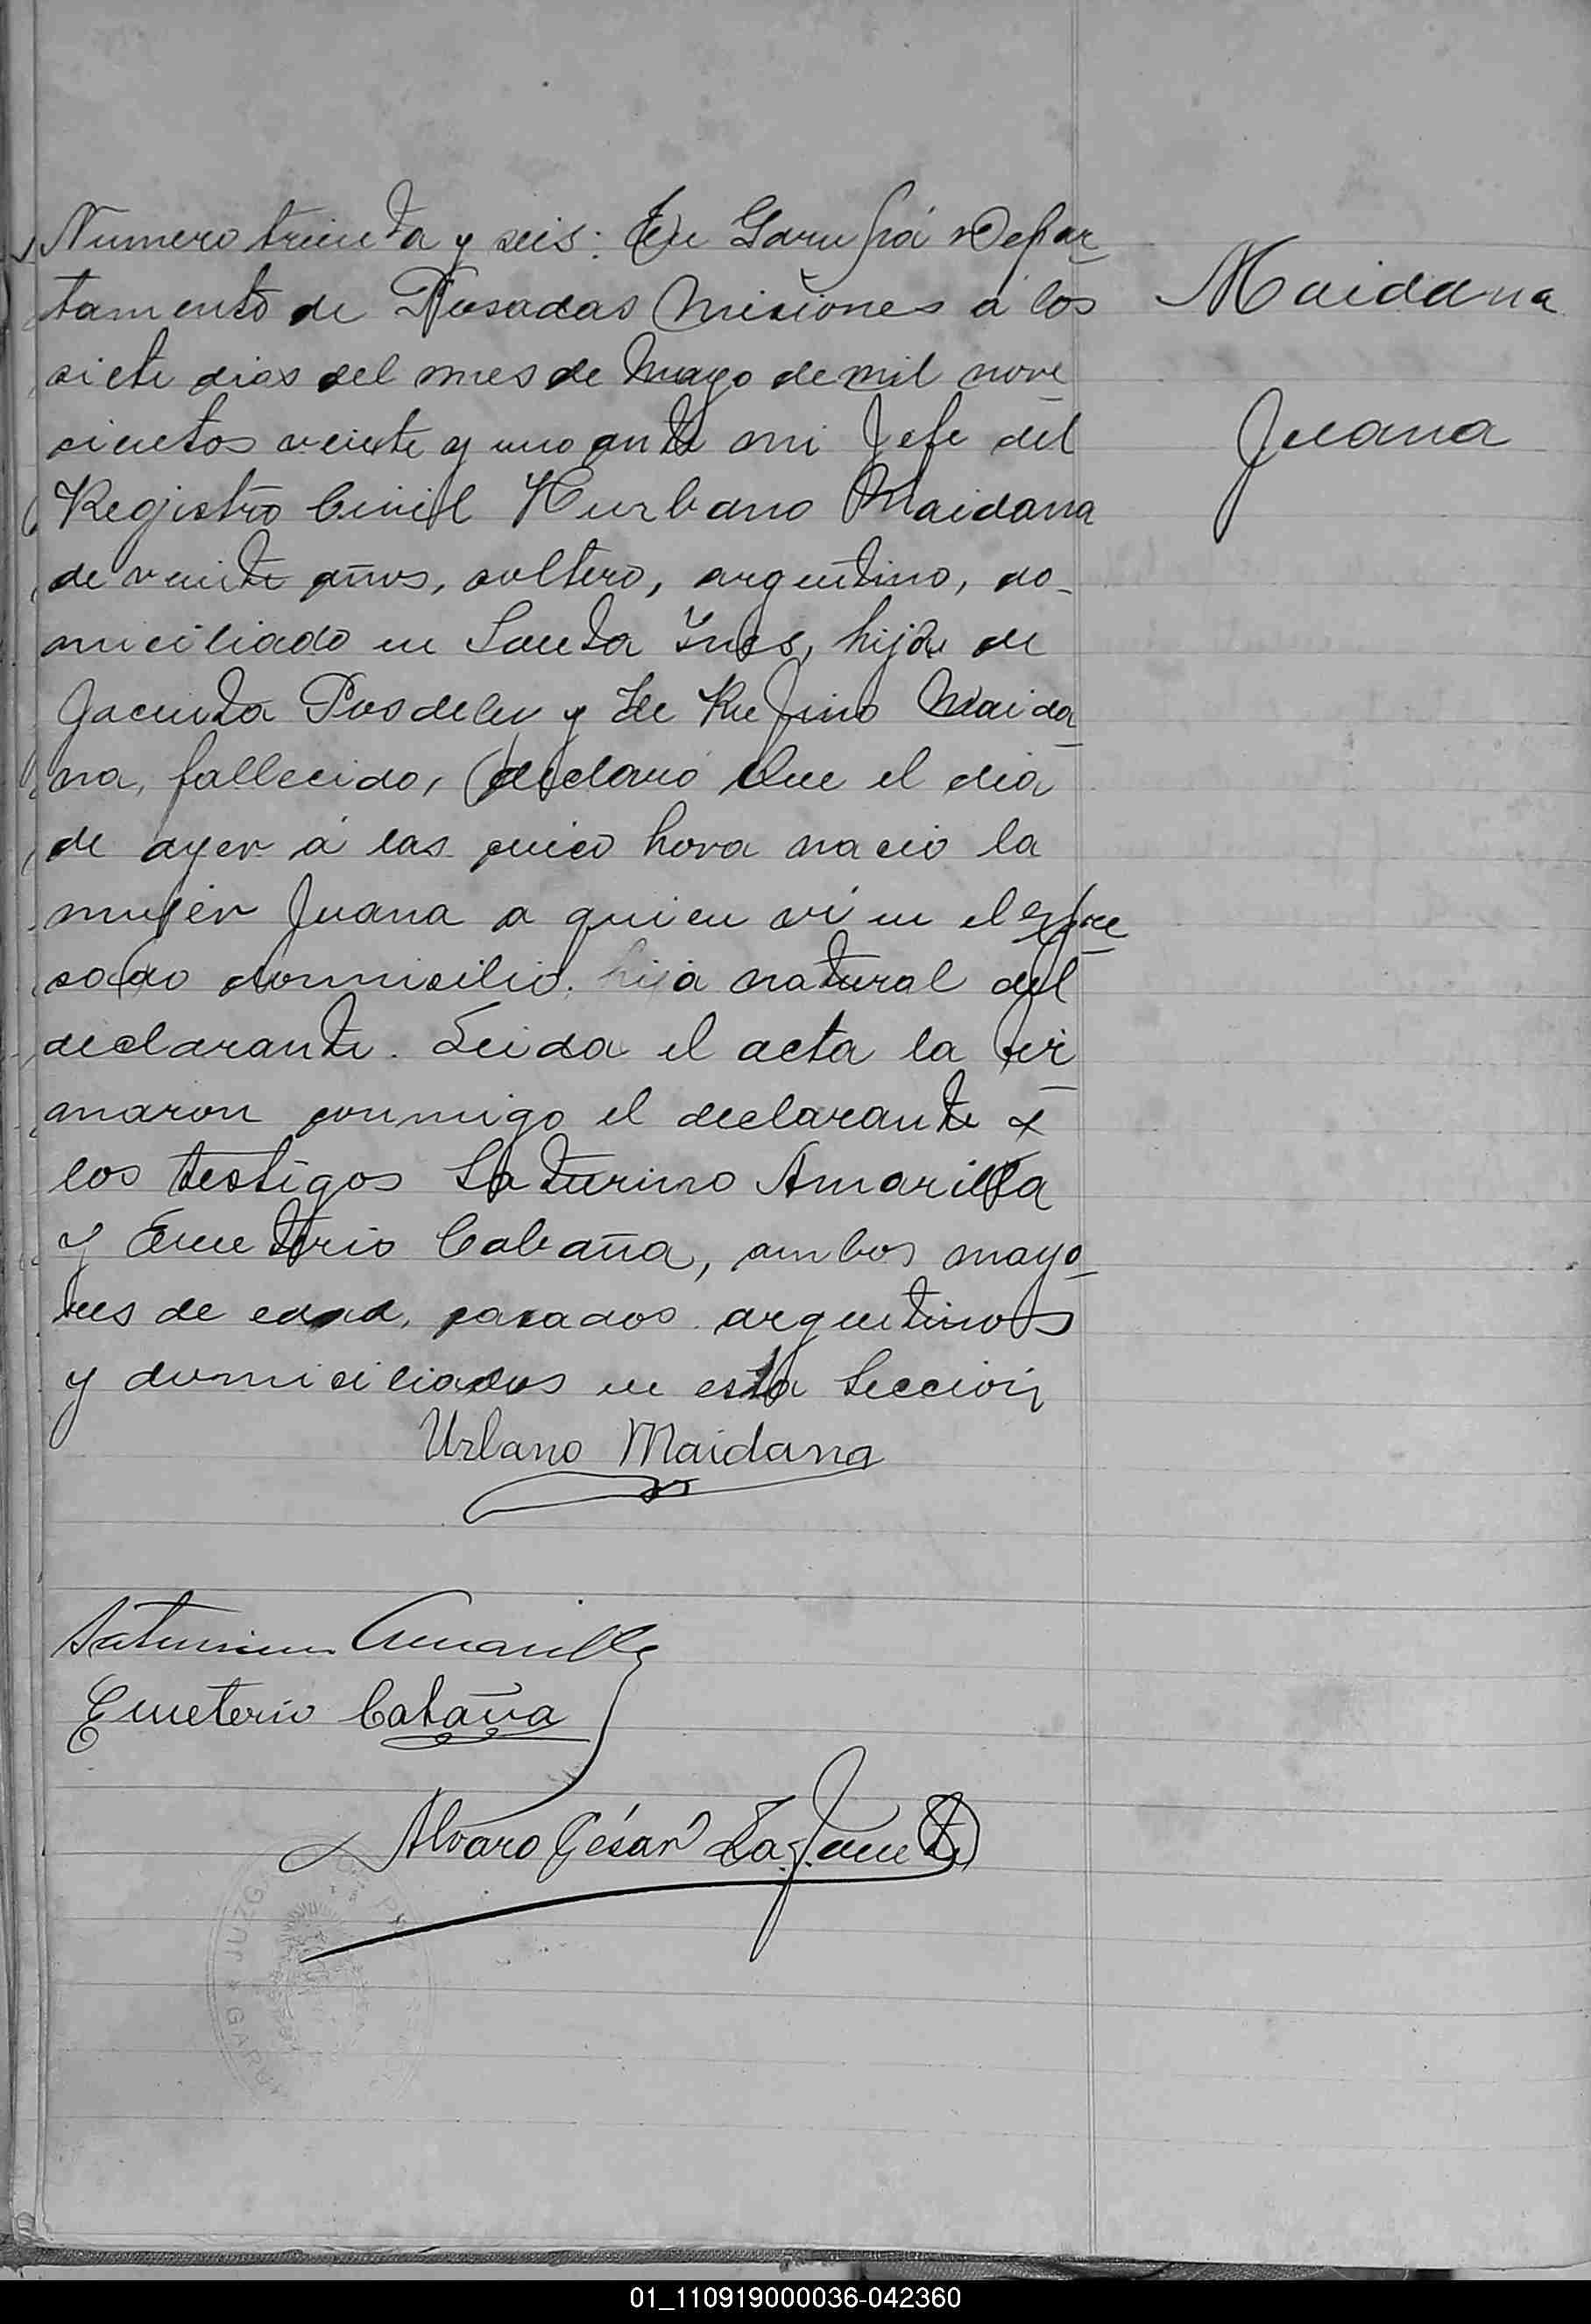 Numero treinta y seis: En Garupá Depar-
tamento de Posadas Misiones á los
siete dias del mes de Mayo de mil nove-
cientos veinte y uno ante mi Jefe del
Registro Civil Hurbano Maidana
de veinte años, soltero, argentino, do-
miciliado en Santa Ines, hijo de
Jacinta Posdeley y de Rufino Maida-
na, fallecido, declaró Que el dia
de ayer á las cinco hora nació la
mujer Juana a quien vi en el expre-
sado domisilio. hija natural del
declarante. Leida el acta la fir-
maron conmigo el declarante y
los testigos Saturino Amarilla
y Emeterio Cabaña, ambos mayo-
res de edad, casados argentinos
y domiciliados en esta Sección
Maidana
Juana
Urbano Maidana
Saturnino Amarilla
Emeterio Cabaña
Alvaro César
JUZGA
GARU
01_110919000036-042360